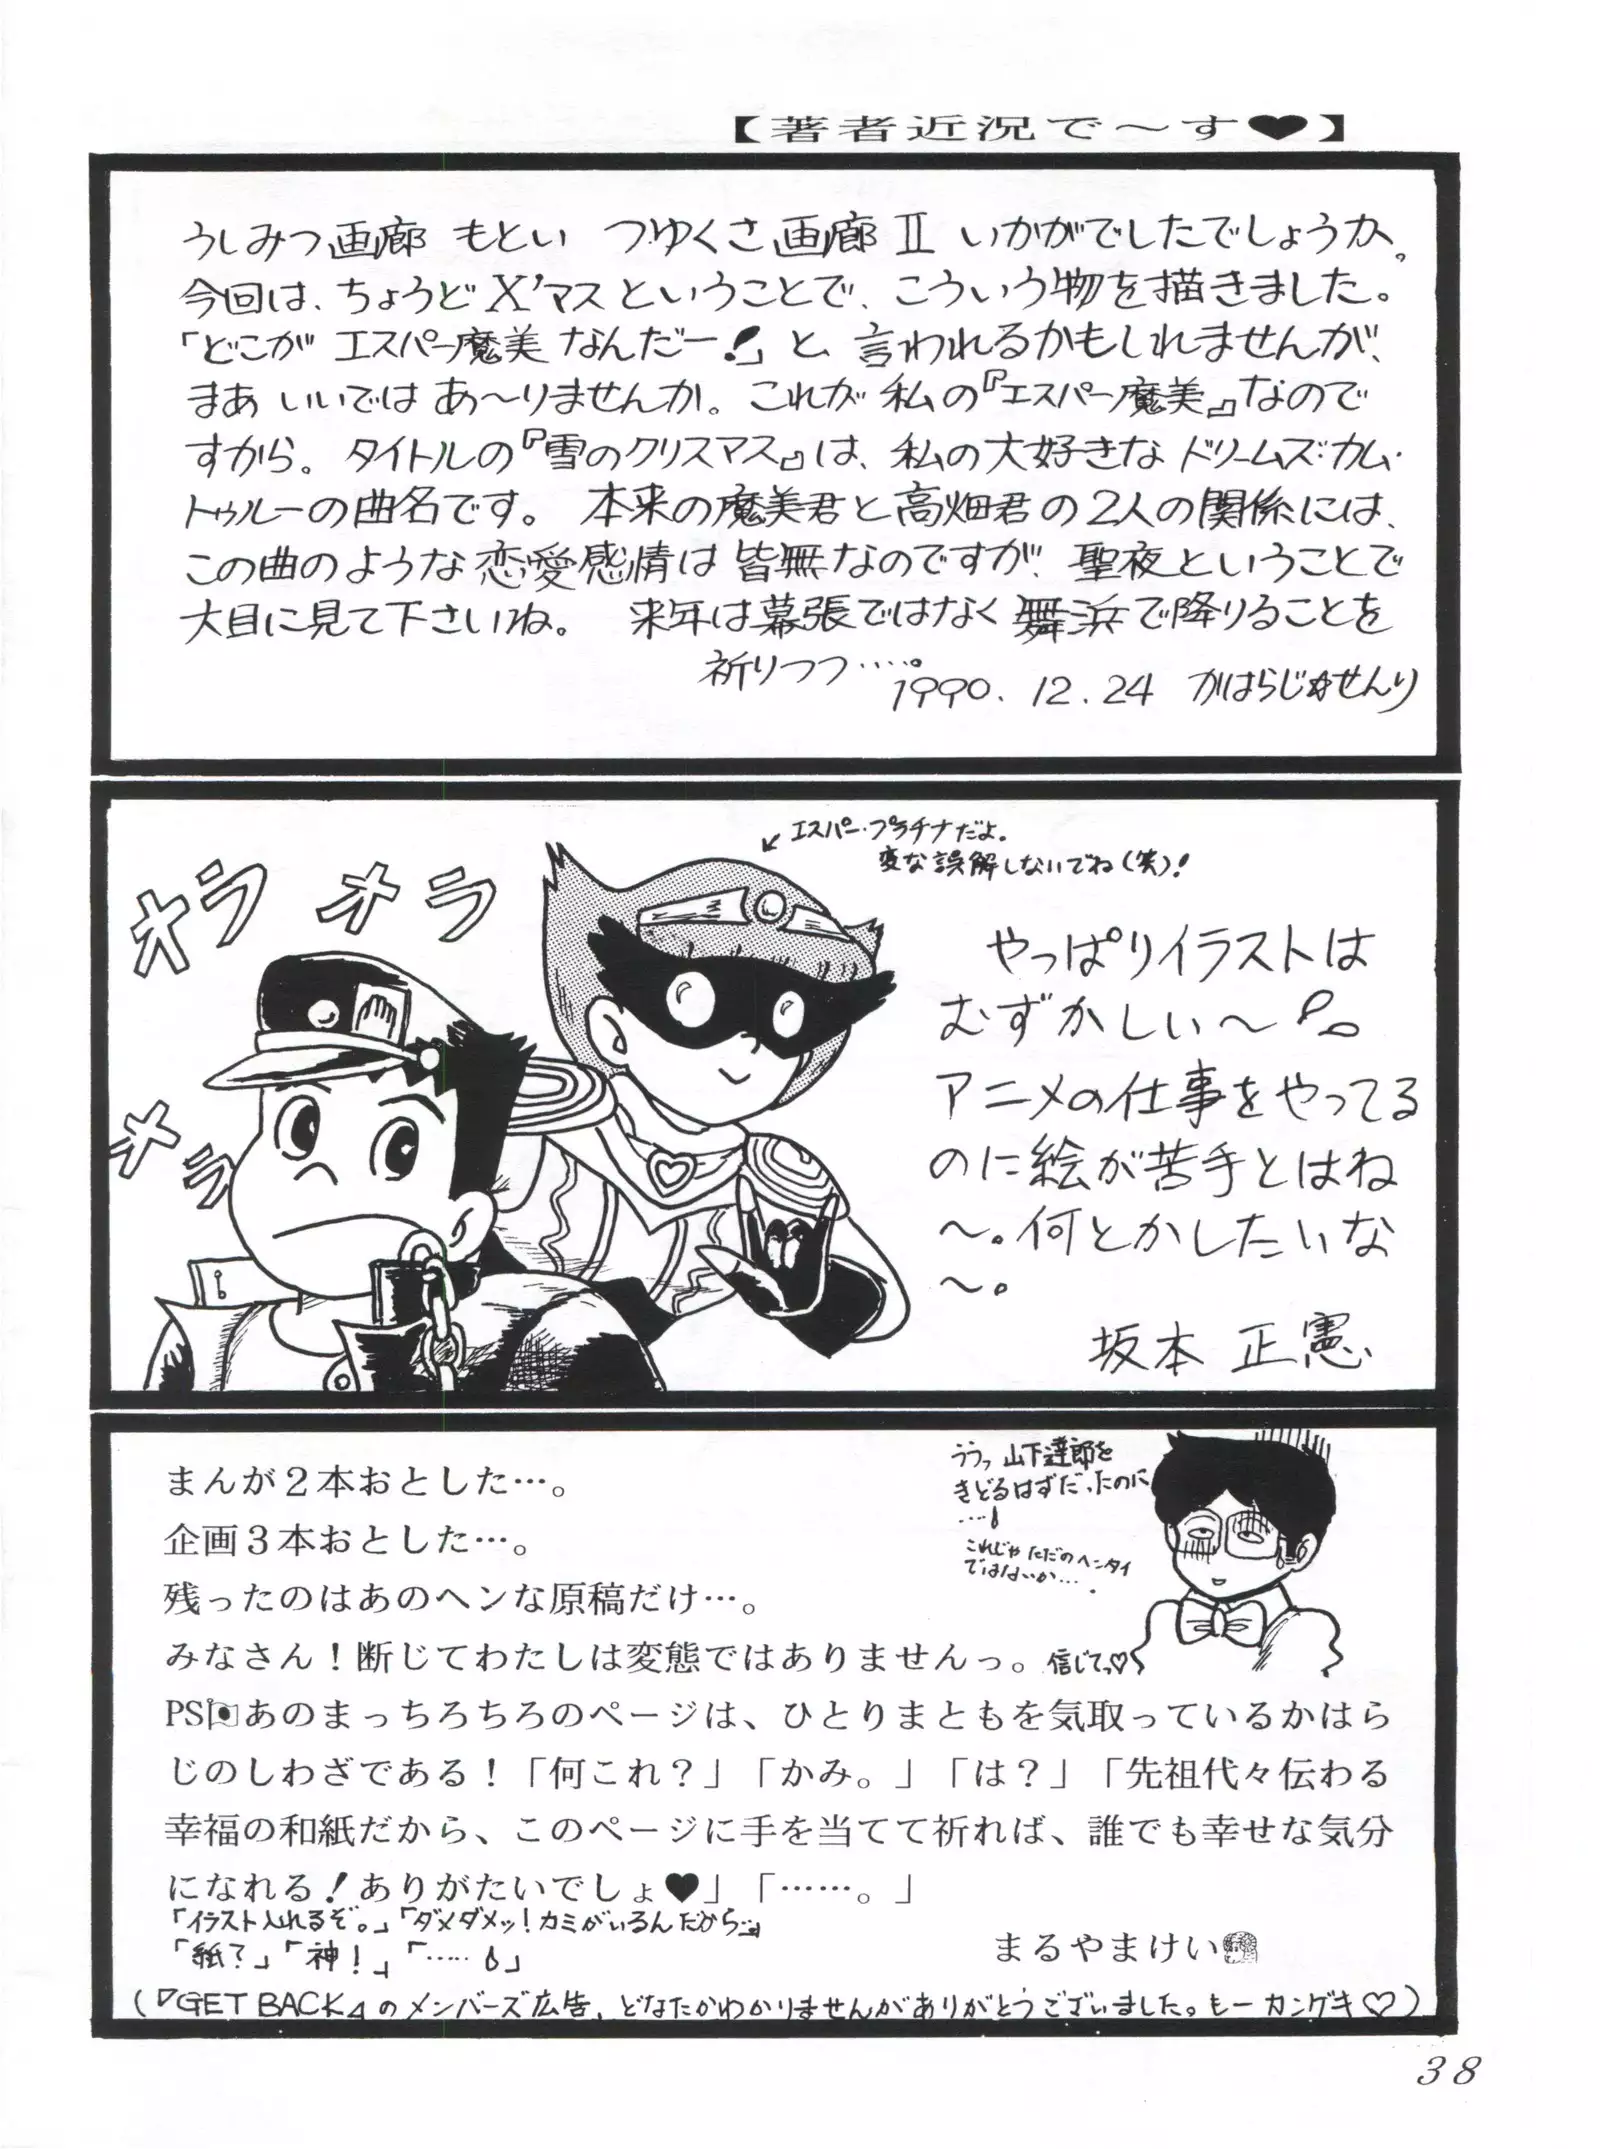 【著者近況で～す♥】
うしみつ画廊 もとい つゆくさ画廊Ⅱ いかがでしたでしょうか。
今回は、ちょうどX'マスということで、こういう物を描きました。
「どこが エスパー魔美 なんだー!」と、言われるかもしれませんが、
まあ いいでは あ～りませんか。これが 私の『エスパー魔美』なので
すから。タイトルの『雪のクリスマス』は、私の大好きな ドリームズ・カム・
トゥルーの曲名です。本来の魔美君と高畑君の2人の関係には、
この曲のような恋愛感情は皆無なのですが、聖夜ということで
大目に見て下さいね。 来年は幕張ではなく舞浜で降りることを
祈りつつ……。
1990.12.24 かはらじ☆せんり
↙エスパー・プラチナだよ。
変な誤解しないでね(笑)!
オラ オラ
オラ
やっぱりイラストは
むずかしい～
アニメの仕事をやってる
のに絵が苦手とはね
～。何とかしたいな
～。
坂本 正憲
ううっ 山下達郎を
きどるはずだったのに
….
これじゃ ただのヘンタイ
ではないか….
まんが２本おとした…。
企画３本おとした…。
残ったのはあのヘンな原稿だけ…。
みなさん！断じてわたしは変態ではありませんっ。信じてっ♡
PSあのまっちろちろのページは、ひとりまともを気取っているかはら
じのしわざである！「何これ？」「かみ。」「は？」「先祖代々伝わる
幸福の和紙だから、このページに手を当てて祈れば、誰でも幸せな気分
になれる！ありがたいでしょ♥」「……。」
「イラスト入れるぞ。」「ダメダメッ! カミがいるんだから。」
「紙?」「神!」「……」
まるやまけい
(『GET BACK』のメンバーズ広告、どなたかわかりませんがありがとうございました。もーカンゲキ♡)
38